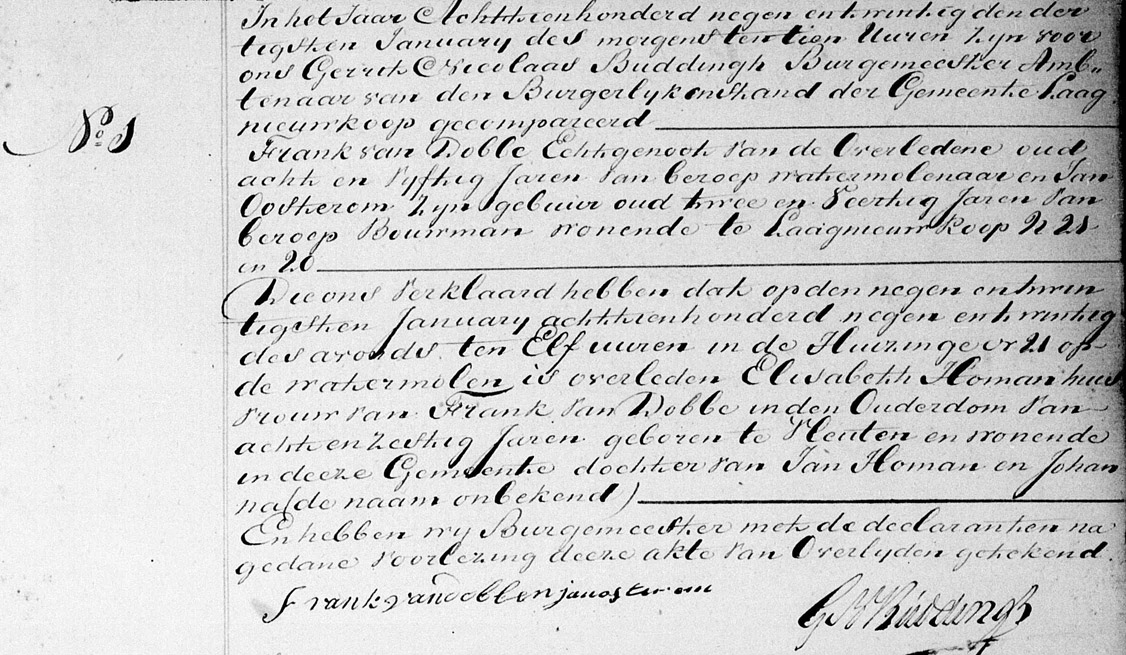 In het Jaar Achttienhonderd negen en twintig den der
tigsten January des morgens ten tien Uuren Zyn voor
ons Gerrit Nicolaas Buddingh Burgemeester Amb„
tenaar van den Burgerlyken stand der Gemeente Laag
nieuwkoop gecompareerd
No 1
Frank van Dobbe Echtgenoot van de Overledene oud
acht en vyftig Jaren van beroep watermolenaar en Jan
Oosterom Zyn gebuur oud twee en Veertig Jaren van
beroep Bouwman wonende te Laagnieuwkoop N 21
en 20
Die ons Verklaard hebben dat op den negen en twin
tigsten January achttienhonderd negen en twintig
des avonds ten Elf uuren in de Huizinge nr 21 op
de watermolen is overleden Elisabeth Homan huis
vrouw van Frank van Dobbe in den Ouderdom van
acht en zestig Jaren geboren te Vleuten en wonende
in deeze Gemeente dochter van Jan Homan en Johan
na (de naam onbekend)
En hebben wy Burgemeester met de declaranten na
gedane voorlezing deeze akte van Overlyden getekend.
Frank van dobben jan osterom
G N Buddingh